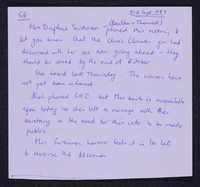 SB 21st Sept. 1987
(Basildon & Thurrock)
Mrs Daphne Swanson phoned this morning to
let you know that the Clinic Closures you had
discussed with her are now going ahead - they
should be closed by the end of October
She heard last Thursday. The unions have
not yet been informed
She's phoned CHC but Mrs Smith is unavailable
again today so she's left a message with their
secretary on the need for this info to be made
public
Mrs Swanson however feels it is too late
to reverse the decision